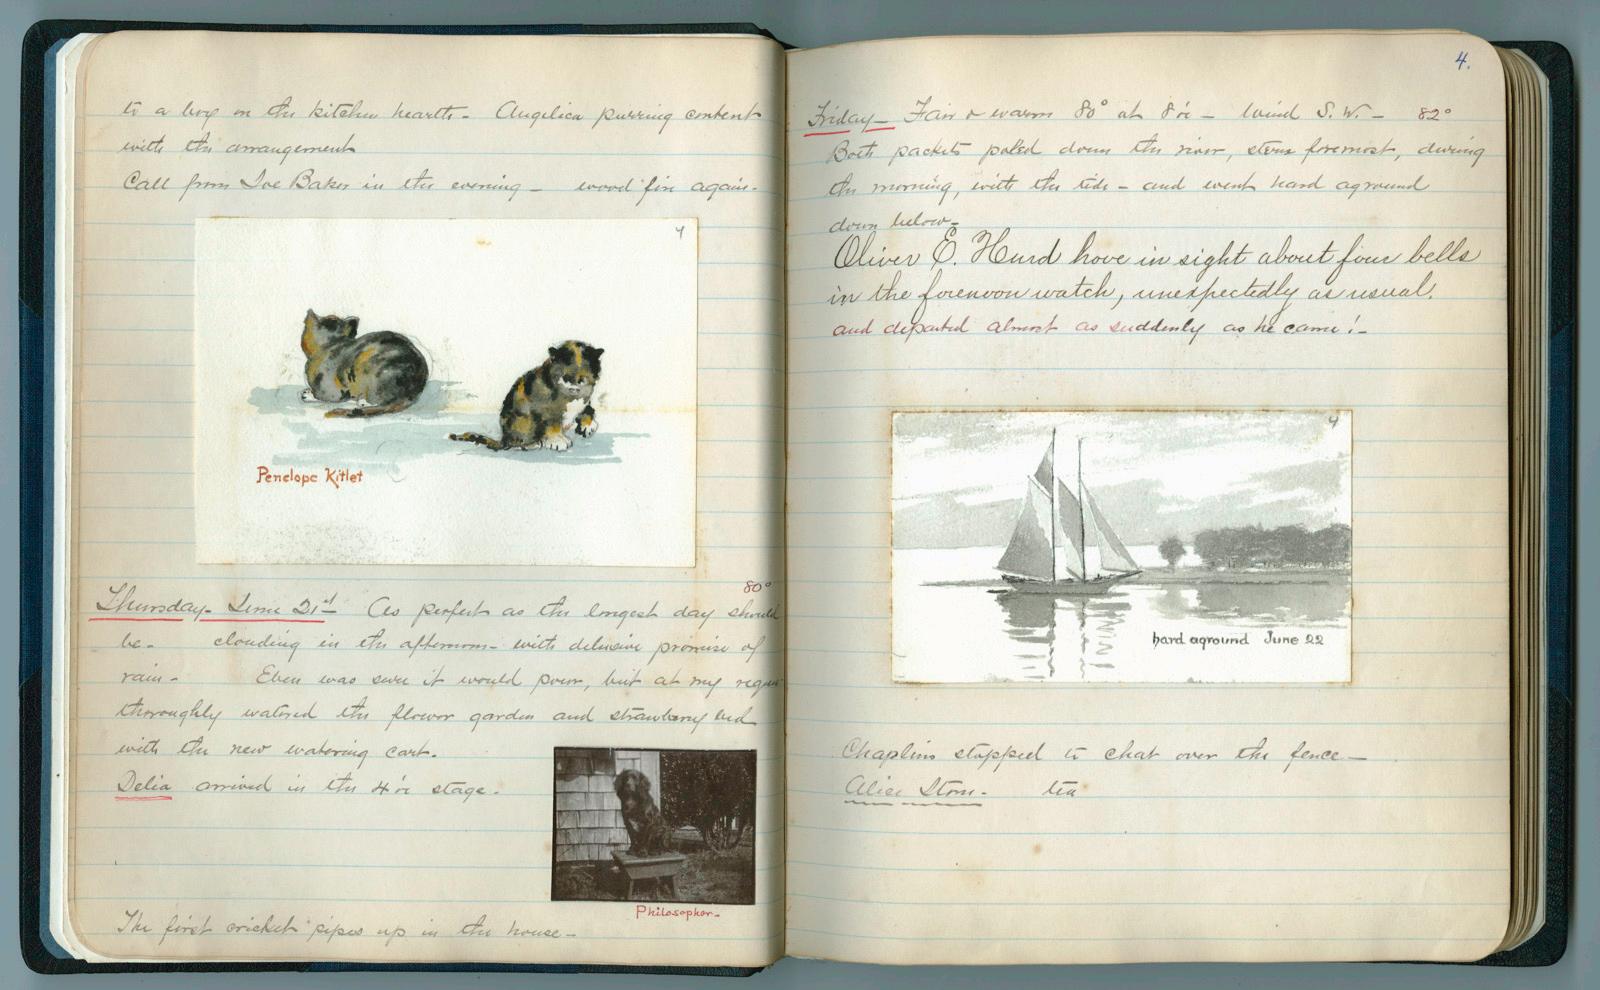 to a box on the kitchen hearth - Angelica purring content
with the arrangement
Call from Joe Baker in the evening - wood fire again.
4
Penelope Kitlet
80°
Thursday - June 21st As perfect as the longest day should
be - clouding in the afternoon - with delusive promise of
rain - Eben was sure it would pour, but at my request
thoroughly watered the flower garden and strawberry bed
with the new watering cart.
Delia arrived in the 4 o'c stage.
Philosopher -
The first cricket pipes up in the house -
4.
Friday - Fair & warm 80° at 8 o'c - Wind S. W. - 82°
Both packets poled down the river, stern foremost, during
the morning, with the tide - and went hard aground
down below -
Oliver E. Hurd hove in sight about four bells
in the forenoon watch, unexpectedly as usual.
and departed almost as suddenly as he came! -
4
hard aground June 22
Chaplins stopped to chat over the fence -
Alice Stone - tea